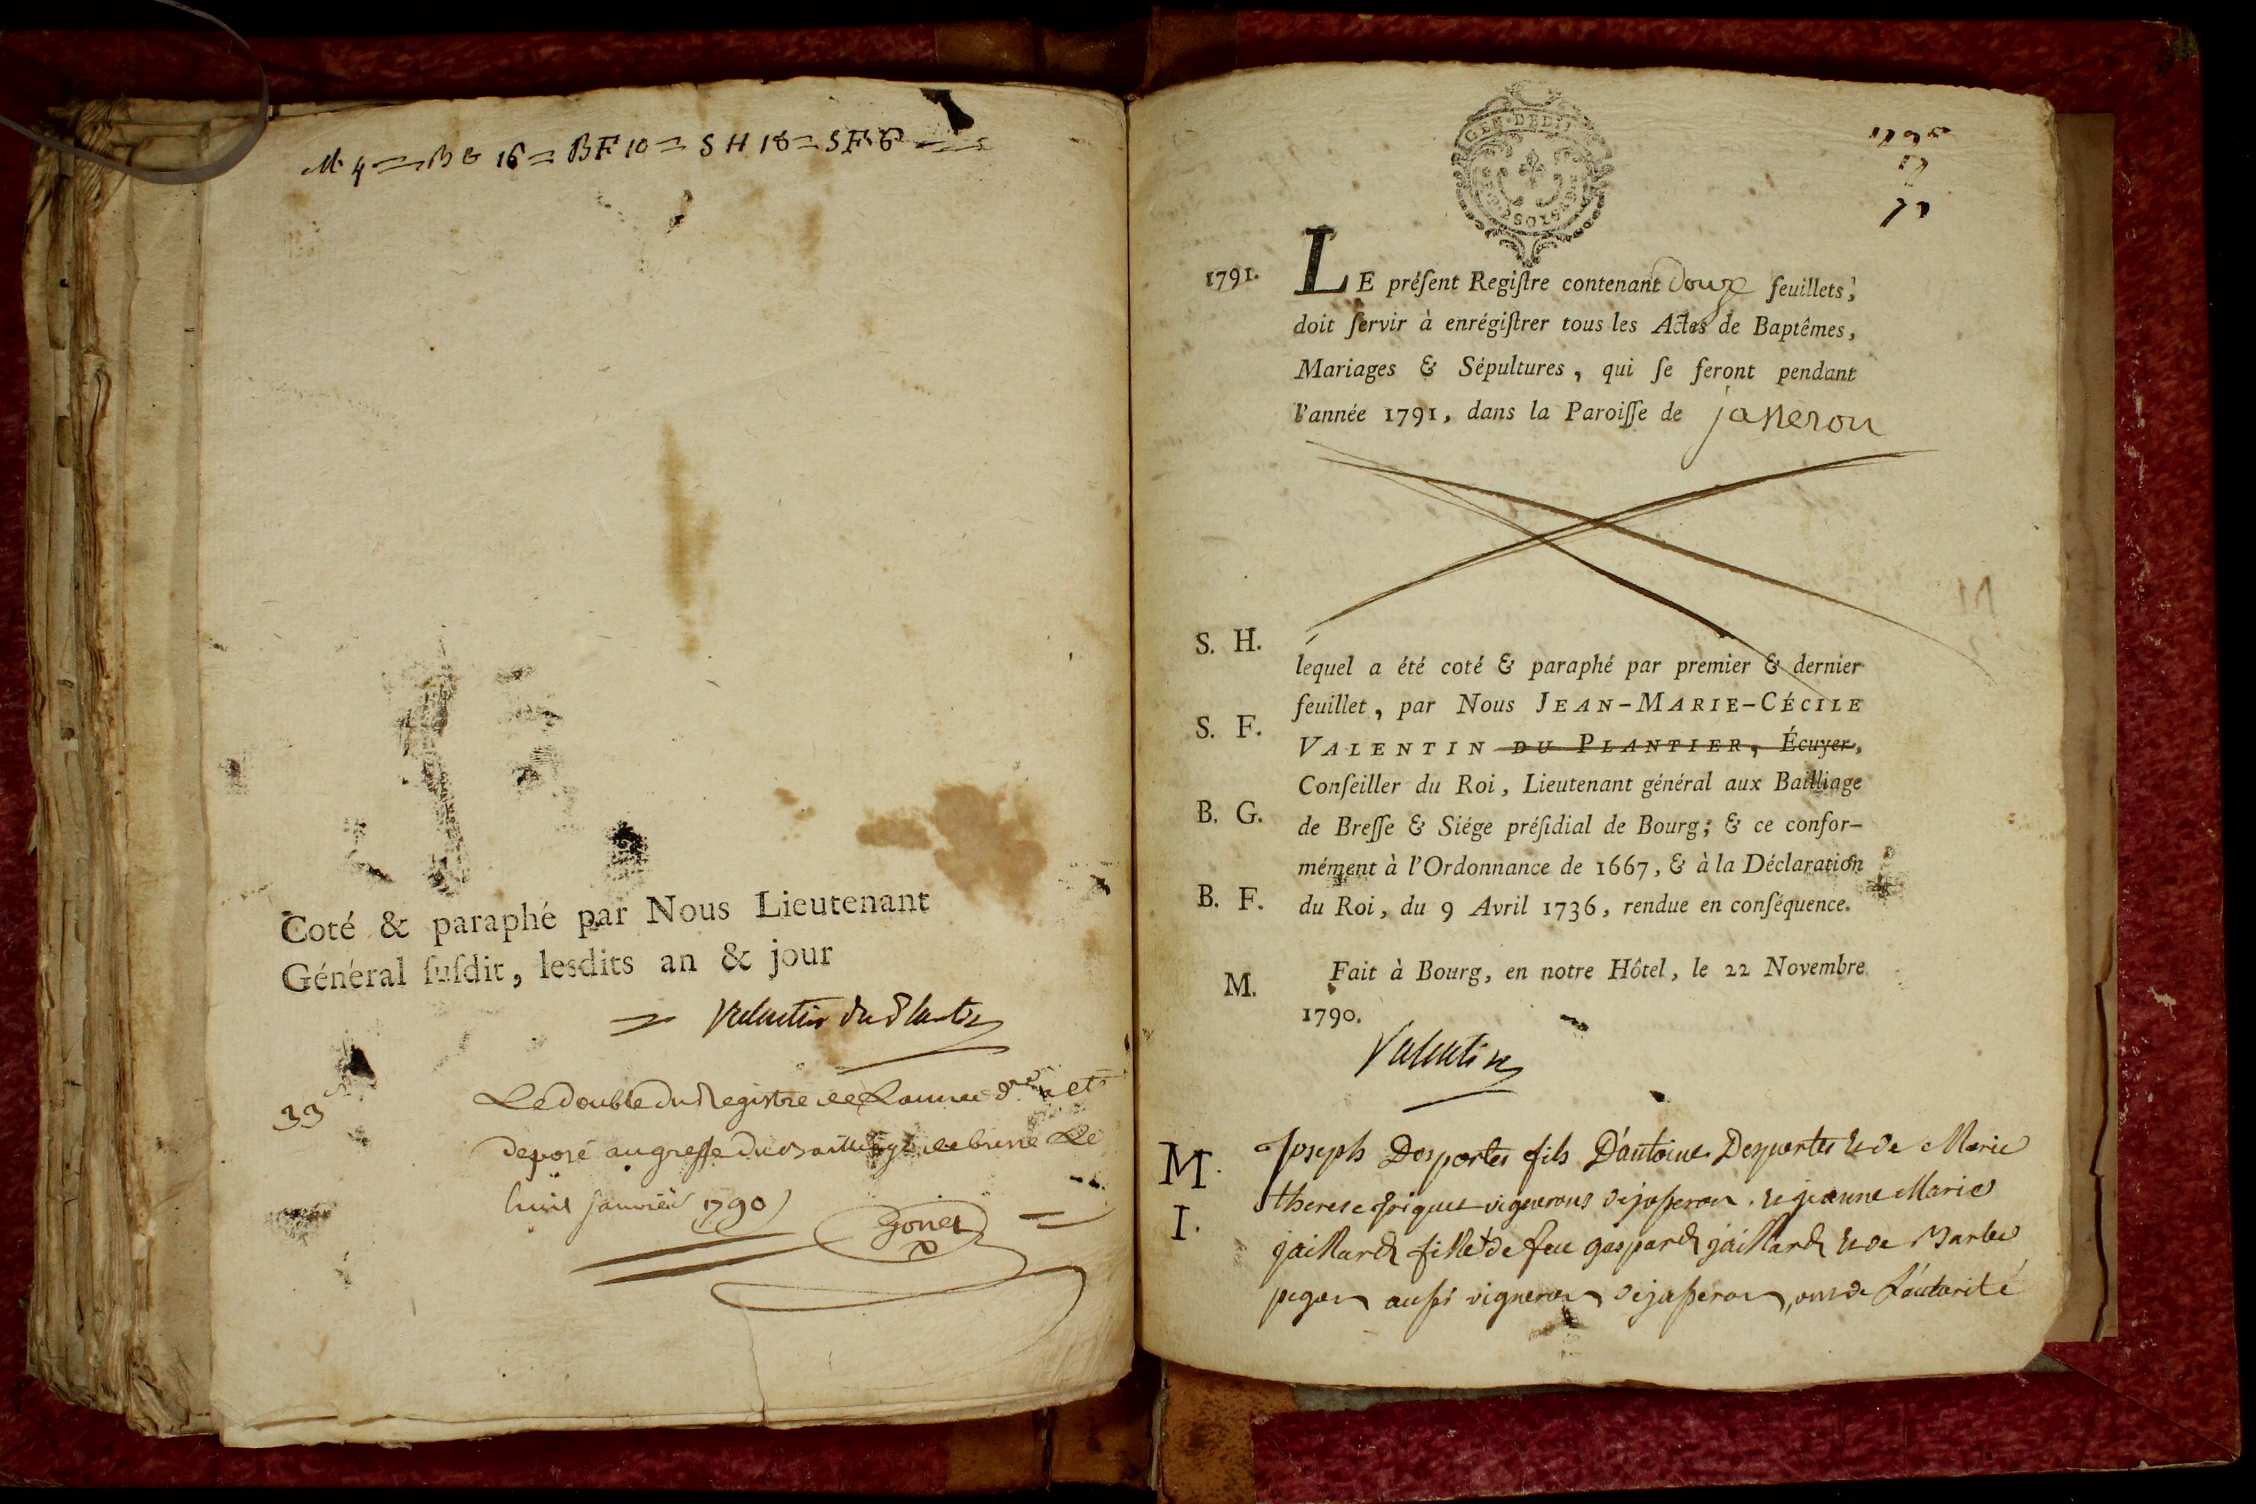 M 4 = B G 16 = BF 10 = S H 18 = S F 6
Coté & paraphé par Nous Lieutenant
Général ſuſdit, lesdits an & jour
Valentin du Plantier
33
Le double du Registre de Lannee der a ete
deposé au greffe du Bailliage de bresse Le
huit janvier 1790
Gonet
GEN. DEDIT
1791.
LE préſent Regiſtre contenant Douze feuillets,
doit ſervir à enrégiſtrer tous les Actes de Baptêmes,
Mariages & Sépultures, qui ſe feront pendant
l'année 1791, dans la Paroiſſe de jasseron
S. H.
lequel a été coté & paraphé par premier & dernier
feuillet, par Nous JEAN-MARIE-CÉCILE
S. F.
VALENTIN DU PLANTIER, Écuyer,
Conſeiller du Roi, Lieutenant général aux Bailliage
B. G.
de Breſſe & Siége préſidial de Bourg; & ce confor-
mément à l'Ordonnance de 1667, & à la Déclaration
B. F.
du Roi, du 9 Avril 1736, rendue en conſéquence.
M.
Fait à Bourg, en notre Hôtel, le 22 Novembre
1790.
Valentin
M.
Joseph Desportes fils D'antoine Desportes et de Marie
therese vignerons de jasseron. et jeanne Marie
I.
jaillard fille de feu gaspard jaillard et de Marthe
pegon aussi vigneron de jasseron, ont de L'autorité